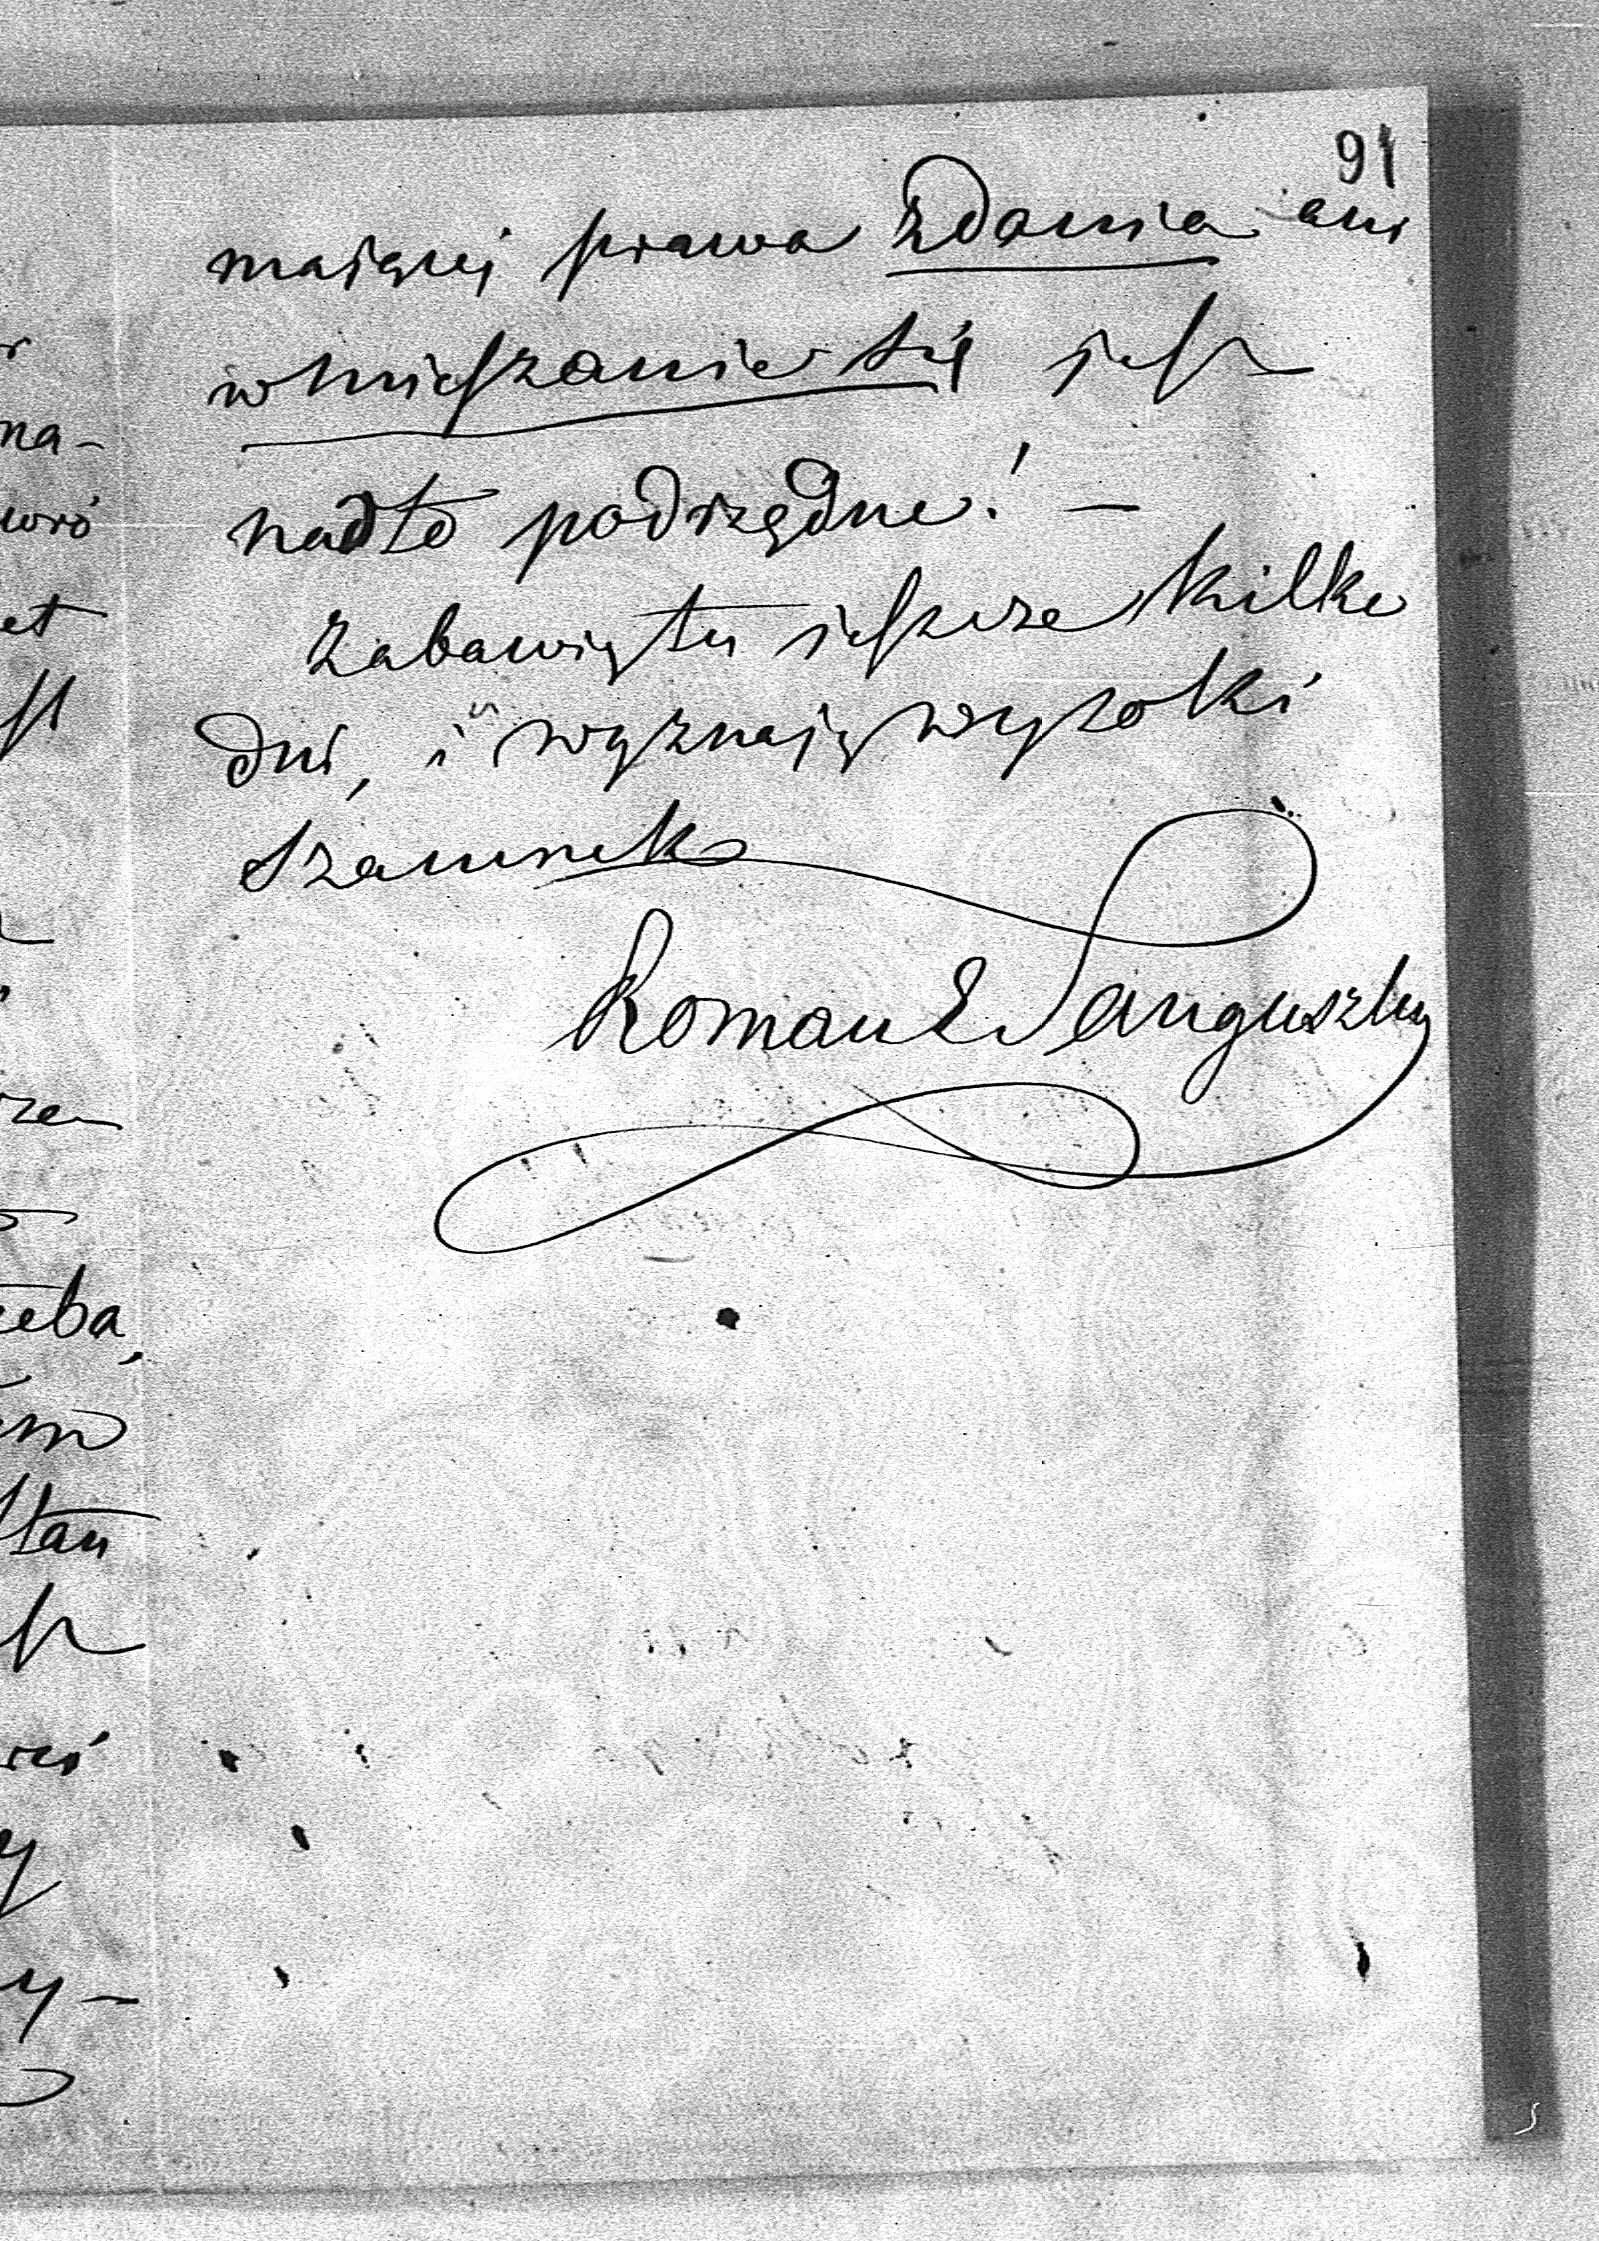 91
mającej prawa zdania ani
wmieszanie się jest
nadto podrzędne! —
Zabawię tu jeszcze kilka
dni, i wyznaję wysoki
szacunek
Roman Sanguszko
na-
et
rze
eba,
stan
y-